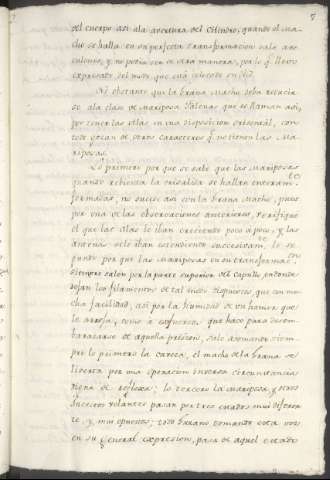 del cuerpo asi ala avertura del Cilindro, quando el Ma-
cho se halla en su perfecta transformacion sale re-
culando, y no podia ser de otra manera, por lo q.e llevo
expresado del modo que está colocado en el
No obstante que la brana Macho deba reducir
se ala clase de Mariposa Phalenas que se llaman asi,
por tener las alas en una disposicion orisontal, con
todo gozan de otros caracteres q.e no tienen las Ma-
riposas.
Lo primero por que se sabe que las Mariposas
quando rebienta la crisalida se hallan enteram.te
formadas, no sucede asi con la brana Macho, pues
por una de las observaciones anteriores, verifiqué
el que las alas le iban creciendo poco a poco, y las
antenas se le iban estendiendo succesivam.te lo se-
gundo por que las Mariposas en su transformac.on
siempre salen por la parte superior del Capullo en donde
dejan los filamentos de tal modo dispuestos que con mu-
cha facilidad, asi por la humedad de un humor que
la arroja, como a esfuerzos que hace para desem-
barazarse de aquella prision, sale asomando siem-
pre lo primero la caveza, el macho de la brana se
liberta por una operacion inversa circunstancia
digna de reflexa; lo tercero la mariposa, y otros
Insectos volantes pasan por tres estados mui diferen-
te, y mui opuestos; todo Gusano tomando esta voz
en su general expresion, pasa de aquel estado